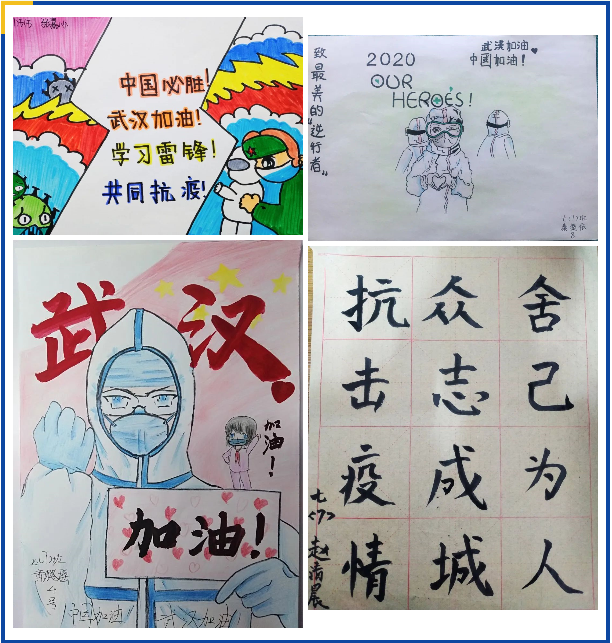 中国必胜!
武汉加油!
学习雷锋!
共同抗疫!
致最美的"逆行者"
2020
OUR
HEROES!
武汉加油
中国加油!
武汉
加油!
加油!
中国加油
武汉加油
舍己为人
众志成城
抗击疫情
七(7)